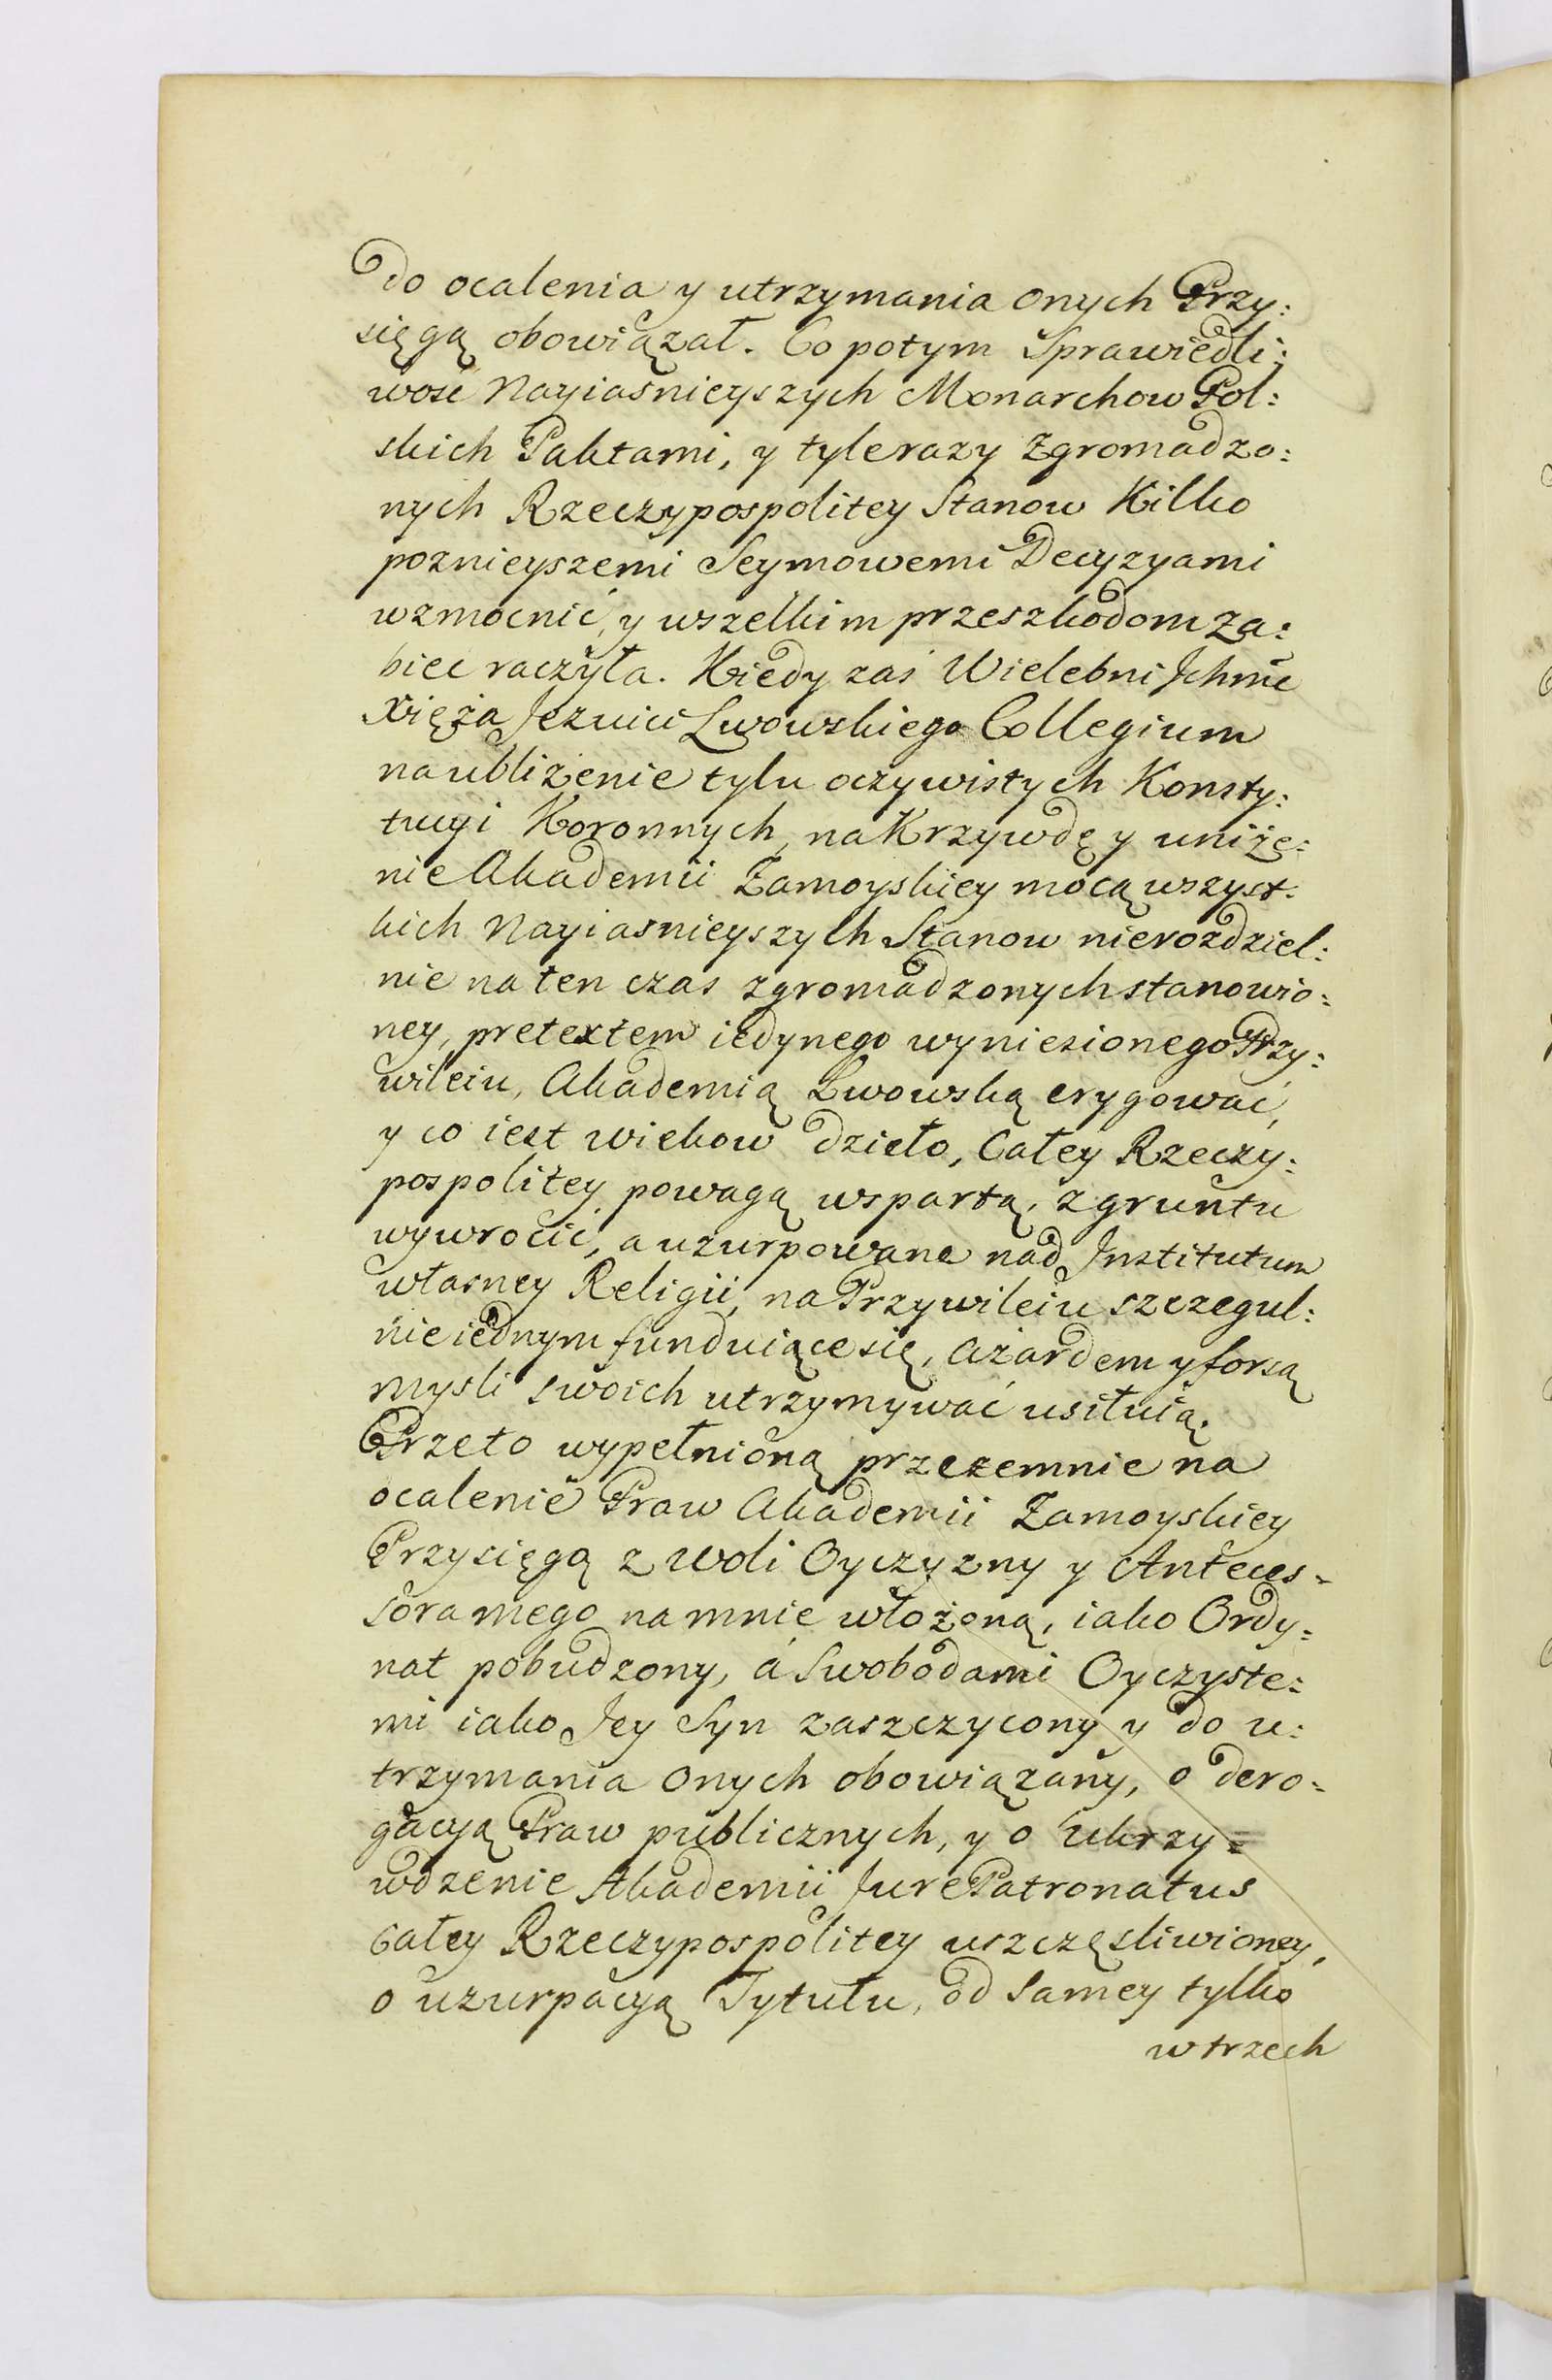 Do ocalenia y utrzymania onych Przy:
sięgą obowiązał. Co potym Sprawiedli:
wość Nayiaśnieyszych Monarchow Pol:
skich Paktami, y tylerazy Zgromadzo:
nych Rzeczypospolitey Stanow Kilko
poznieyszemi Seymowemi Decyzyami
wzmocnić, y wszelkim przeszkodom za:
biec raczyła. Kiedy zaś Wielebni Jchmć
Xięża Jezuici Lwowskiego Collegium
na ubliżenie tylu oczywistych Konsty:
tucyi Koronnych, na Krzywdę y uniże:
nie Akademii Zamoyskiey mocą wszyst:
kich Nayiasnieyszych Stanow nierozdziel:
nie na ten czas zgromadzonych stanowio:
ney, pretextem iedynego wyniesionego Przy:
wileiu, Akademią Lwowską erygować,
y co iest wiekow dzieło, Całey Rzeczy:
pospolitey powagą wspartą, z gruntu
wywrocić, a uzurpowane nad Institutum
własney Religii, na Przywileiu szczegul:
nie iednym funduiące się, Ażardem y forsą
mysli swoich utrzymywać usiłuią.
Przeto wypełnioną przezemnie na
ocalenie Praw Akademii Zamoyskiey
Przysięgą z woli Oyczyzny y Anteces=
sora mego na mnie włożoną, iako Ordy=
nat pobudzony, á Swobodami Oyczyste=
mi iako Jey Syn zaszczycony y do u:
trzymania onych obowiązany, o dero=
gacyą Praw publicznych, y o Ukrzy=
wdzenie Akademii Jure Patronatus
całey Rzeczypospolitey uszczęsliwioney,
o uzurpacyą Tytułu, od Samey tylko
w trzech